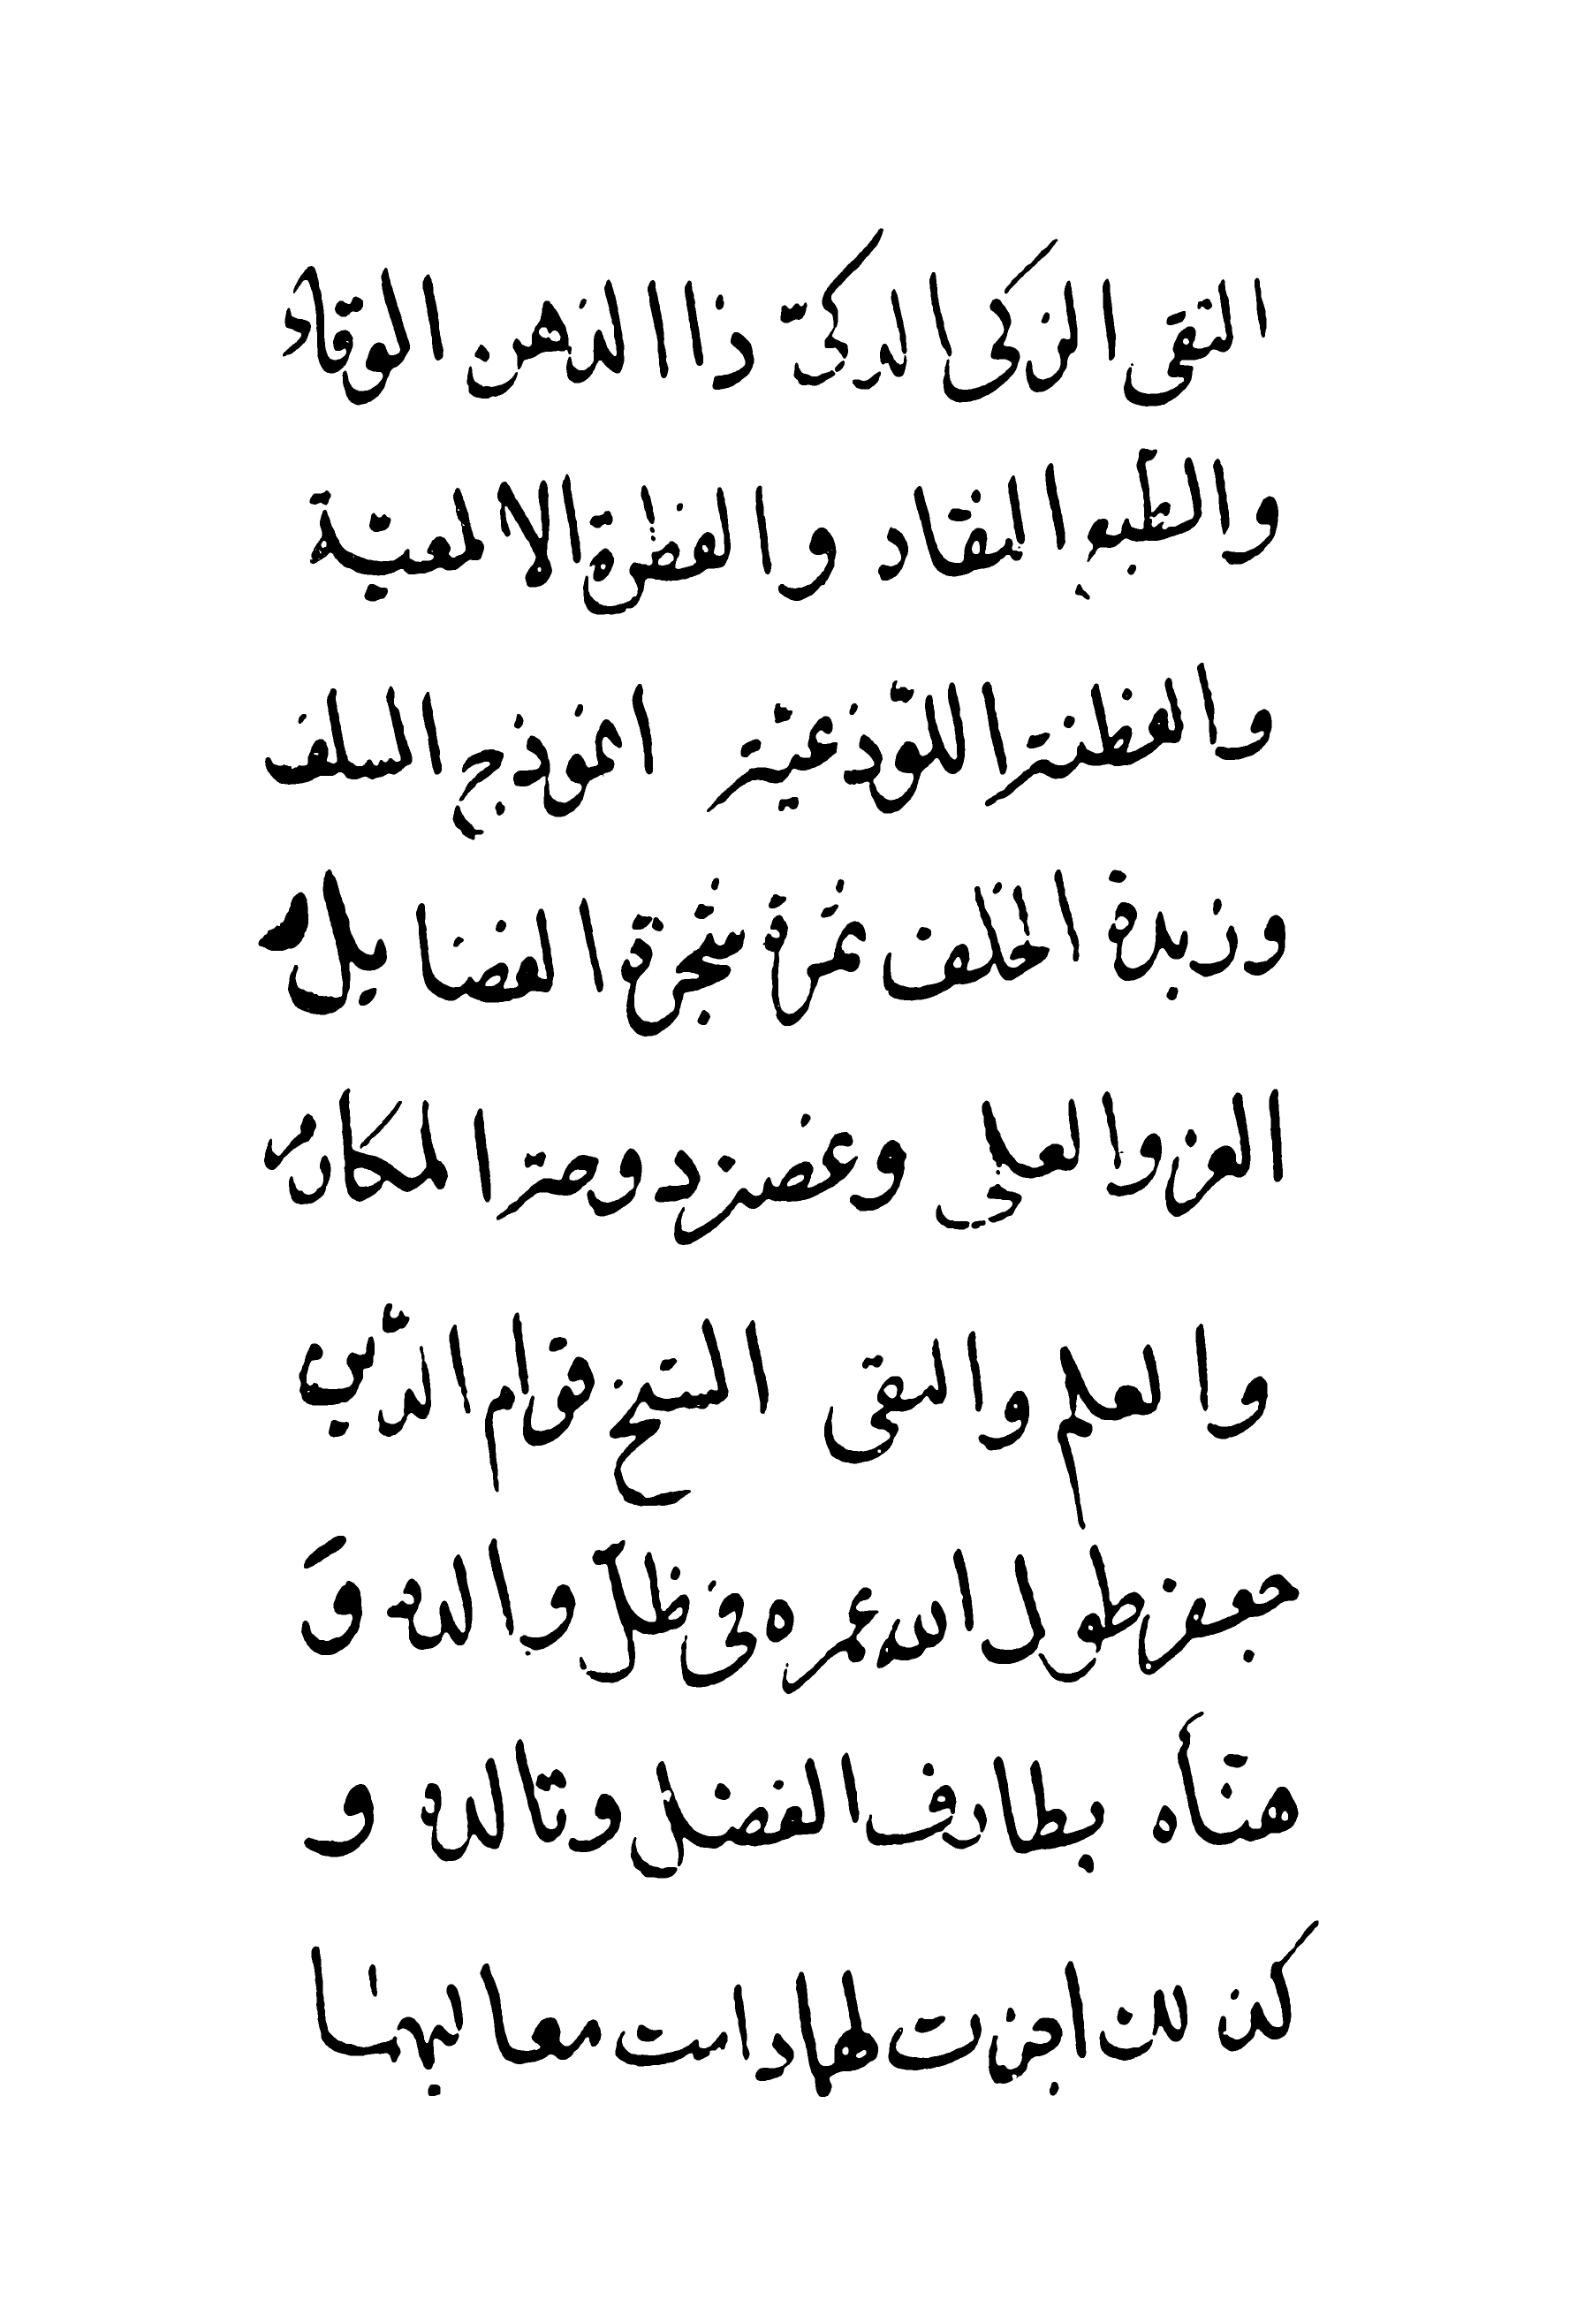 التقى الزكى الذكىّ ذا الذهن الوقّاد
والطبع النقّاد والفطرة الالمعيّة
والفطنة اللّوذعيّة انموذج السلف
وزبدة الخلف ثمرة شجرة الفضايل
العز والمعالي وغصن دوحة المكارم
والعلم والتقى الشيخ قوام الدّين
جعفر طول الله عمره فى ظلّ والده وَ
هنّأه بطارف الفضل وتالده و
كذلك اجزت لهما دامت معاليهما